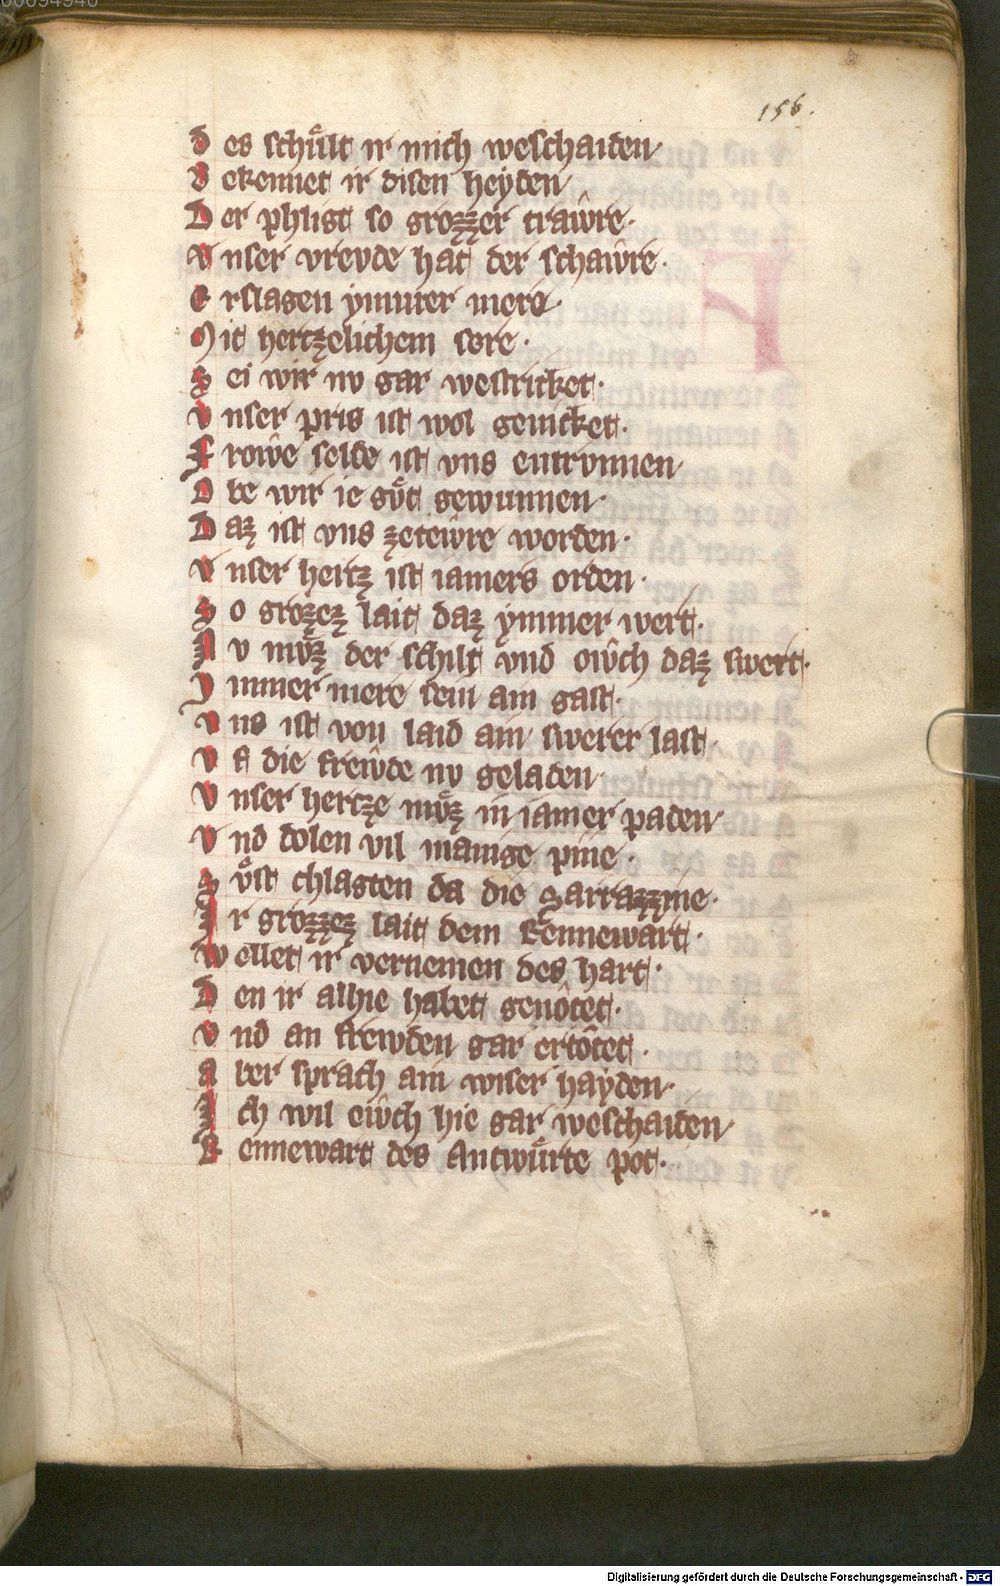 156.
Des schuͤlt ir mich weschaiden·
Bekennet ir disen heyden
Der phligt so grozzer traẃre·
Vnser vrevde hat der schaẃre·
Erslagen ymmer mere·
Mit hertzelichem sere·
Sei wir nv gar westricket·
Vnser pris ist wol genicket·
Froẃe selde ist vns entrvnnen
Obe wir ie guͦt gewunnen·
Daz ist vns zeteẃre worden·
Vnser hertz ist iamers orden·
So grozez lait daz ymmer wert·
Nv muͤz der schilt vnd oẃch daz swert·
Immer mere sein ain gast·
Vns ist von laid ain swerer last·
Vf die freẃde nv geladen·
Vnser hertze muͤz in iamer paden
Vnd dolen vil manige pine·
Suͤst chlagten da die Sarrazzine·
Ir grozzez lait dem Rennewart·
Wellet ir vernemen des hart·
Den ir alhie habet genôtet·
Vnd an frewden gar ertôtet·
Aber sprach ain wiser hayden·
Ich wil eẃch hie gar weschaiden
Rennewart des Antwuͤrte pot·
Digitalisierung gefördert durch die Deutsche Forschungsgemeinschaft - DFG